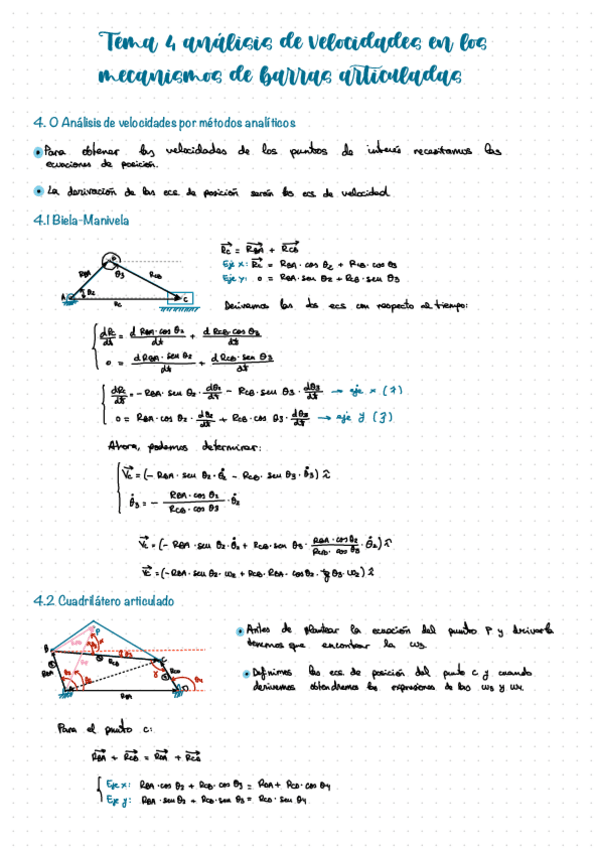 Tema 4 análisis de velocidades en los
mecanismos de barras articuladas
4.0 Análisis de velocidades por métodos analíticos
Para obtener las velocidades de los puntos de interés necesitamos las
ecuaciones de posición.
La derivación de las ecs. de posición serán las ecs. de velocidad
4.1 Biela-Manivela
B
θ3
RBA
RCB
A
θ2
C
Rc
Rc = RBA + RCB
Eje x: Rc = RBA · cos θ2 + RCB · cos θ3
Eje y: 0 = RBA · sen θ2 + RCB · sen θ3
Derivamos las dos ecs con respecto al tiempo:
dRc/dt = d RBA · cos θ2/dt + d RCB · cos θ3/dt
0 = d RBA · sen θ2/dt + d RCB · sen θ3/dt
dRc/dt = - RBA · sen θ2 · dθ2/dt - RCB · sen θ3 · dθ3/dt → eje x
0 = RBA · cos θ2 · dθ2/dt + RCB · cos θ3 · dθ3/dt → eje y
Ahora, podemos determinar:
Vc = (- RBA · sen θ2 · θ̇2 - RCB · sen θ3 · θ̇3) î
θ̇3 = - RBA · cos θ2/RCB · cos θ3 · θ̇2
Vc = (- RBA · sen θ2 · θ̇2 + RCB · sen θ3 · RBA · cos θ2/RCB · cos θ3 · θ̇2) î
Vc = (- RBA · sen θ2 · ω2 + RCB · RBA · cos θ2 · tg θ3 · ω2) î
4.2 Cuadrilátero articulado
Antes de plantear la ecuación del punto P y derivarla
tenemos que encontrar la ω3.
Definimos las ecs de posición del punto C y cuando
derivemos obtendremos las expresiones de las ω3 y ω4.
P
B
RCB
RBA
C
RDA
Para el punto C:
RBA + RCB = RDA + RCD
Eje x: RBA · cos θ2 + RCB · cos θ3 = RDA + RCD · cos θ4
Eje y: RBA · sen θ2 + RCB · sen θ3 = RCD · sen θ4